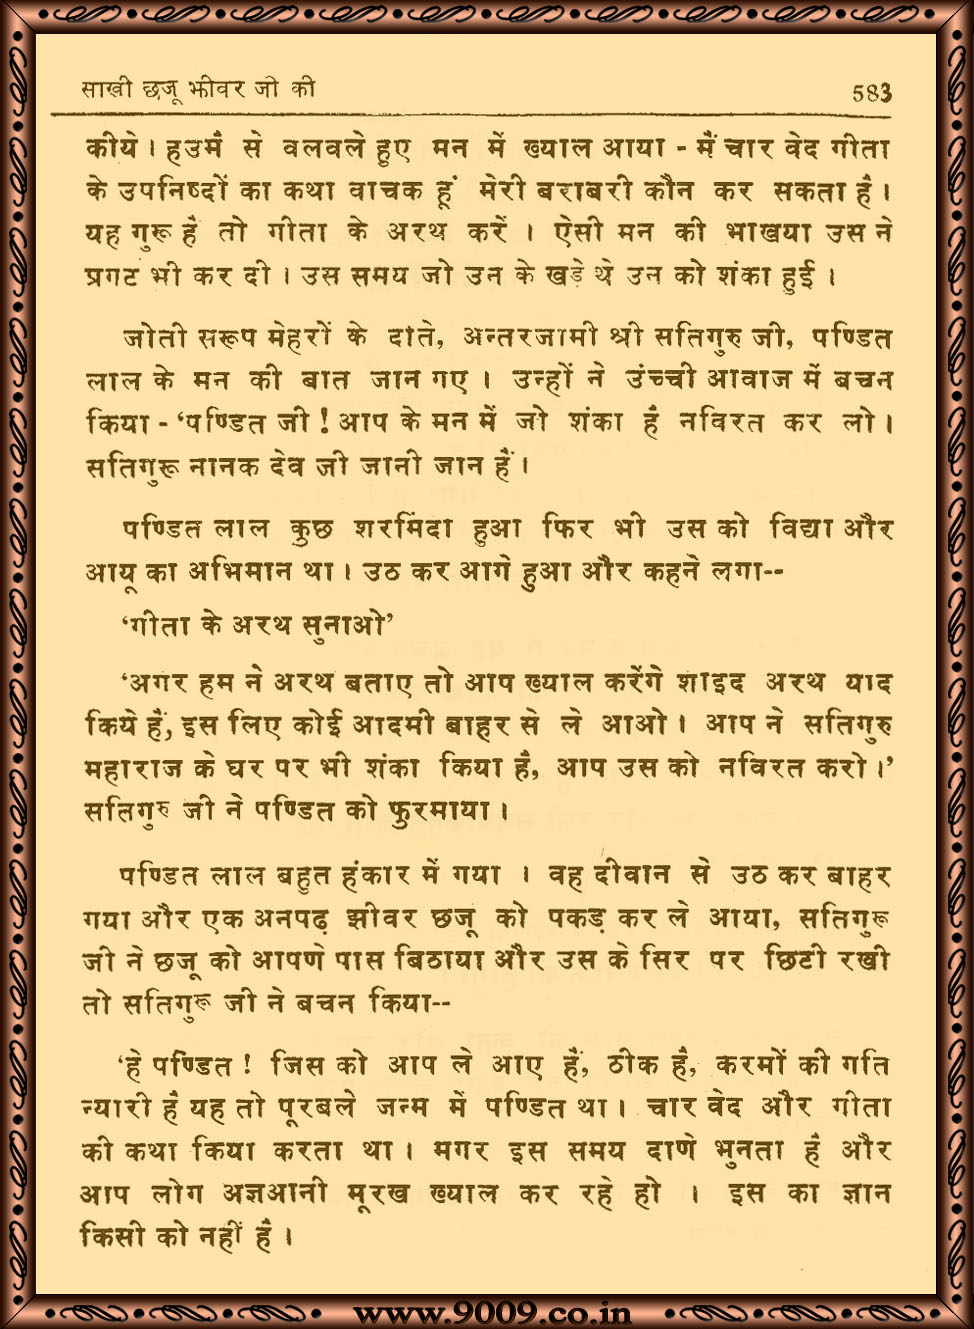 साखी छजू झीवर जी की
583
कीये । हउमैं से वलवले हुए मन में ख्याल आया - मैं चार वेद गीता
के उपनिष्दों का कथा वाचक हूं मेरी बराबरी कौन कर सकता है ।
यह गुरू है तो गीता के अरथ करें । ऐसी मन की भाखया उस ने
प्रगट भी कर दी । उस समय जो उन के खड़े थे उन को शंका हुई ।
जोती सरूप मेहरों के दाते, अन्तरजामी श्री सतिगुरु जी, पण्डित
लाल के मन की बात जान गए । उन्हों ने उंच्ची आवाज में बचन
किया - ‘पण्डित जी ! आप के मन में जो शंका है नविरत कर लो ।
सतिगुरू नानक देव जी जानी जान हैं ।
पण्डित लाल कुछ शरमिंदा हुआ फिर भी उस को विद्या और
आयू का अभिमान था । उठ कर आगे हुआ और कहने लगा--
‘गीता के अरथ सुनाओ’
‘अगर हम ने अरथ बताए तो आप ख्याल करेंगे शाइद अरथ याद
किये हैं, इस लिए कोई आदमी बाहर से ले आओ । आप ने सतिगुरु
महाराज के घर पर भी शंका किया है, आप उस को नविरत करो ।’
सतिगुरु जी ने पण्डित को फुरमाया ।
पण्डित लाल बहुत हंकार में गया । वह दीवान से उठ कर बाहर
गया और एक अनपढ़ झीवर छजू को पकड़ कर ले आया, सतिगुरू
जी ने छजू को आपणे पास बिठाया और उस के सिर पर छिटी रखी
तो सतिगुरू जी ने बचन किया--
‘हे पण्डित ! जिस को आप ले आए हैं, ठीक है, करमों की गति
न्यारी है यह तो पूरबले जन्म में पण्डित था । चार वेद और गीता
की कथा किया करता था । मगर इस समय दाणे भुनता है और
आप लोग अज्ञआनी मूरख ख्याल कर रहे हो । इस का ज्ञान
किसी को नहीं है ।
www.9009.co.in